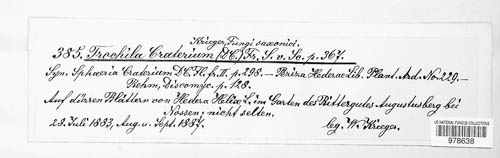 Krieger, Fungi saxonici.
385. Trochila Craterium (DC.) Fr. S. v. Sc. p. 367.
Syn. Sphaeria Craterium DC. Fl. fr. II. p. 298. — Peziza Hederae Lib. Plant. Ard. No. 229. —
Rehm, Discomyc. p. 128.
Auf dürren Blättern von Hedera Helix L. im Garten des Rittergutes Augustusberg bei
Nossen, nicht selten.
23. Juli 1883, Aug. u. Sept. 1887. leg. W. Krieger.
US NATIONAL FUNGUS COLLECTIONS
978638